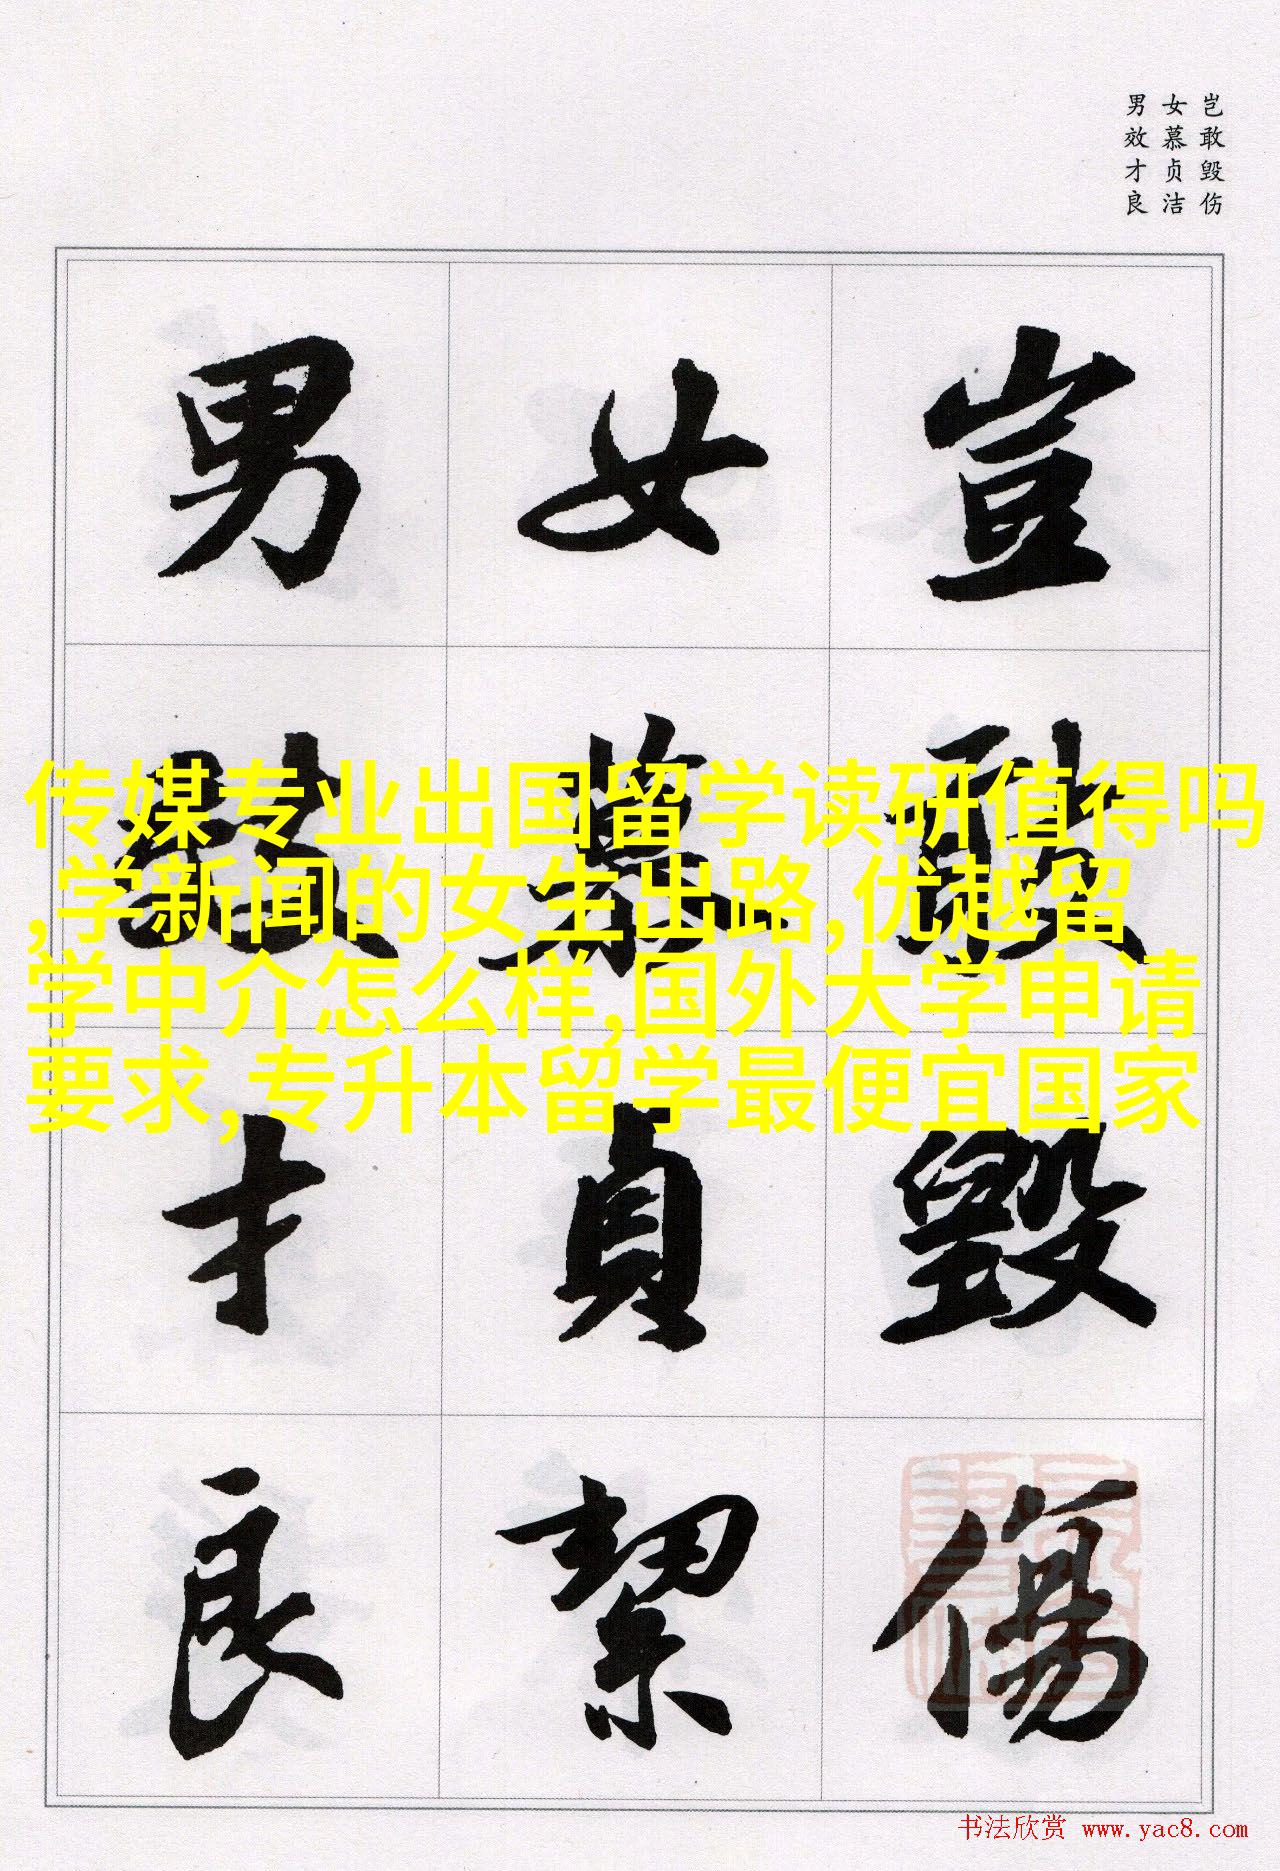 岂敢毁伤
女慕贞洁
男效才良
豈敢毀傷
女慕貞絜
男效才良
传媒专业出国留学读研值得吗
,学新闻的女生出路,优越留
学中介怎么样,国外大学申请
要求,专升本留学最便宜国家
书法欣赏 www.yac8.com